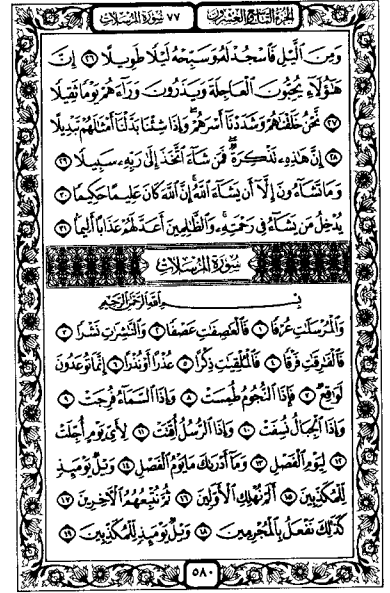 الجزء التاسع والعشرون ٧٧ سورة المرسلات
وَمِنَ ٱلَّيْلِ فَٱسْجُدْ لَهُۥ وَسَبِّحْهُ لَيْلًا طَوِيلًا ٢٦ إِنَّ
هَٰٓؤُلَآءِ يُحِبُّونَ ٱلْعَاجِلَةَ وَيَذَرُونَ وَرَآءَهُمْ يَوْمًا ثَقِيلًا
٢٧ نَّحْنُ خَلَقْنَٰهُمْ وَشَدَدْنَآ أَسْرَهُمْ وَإِذَا شِئْنَا بَدَّلْنَآ أَمْثَٰلَهُمْ تَبْدِيلًا
٢٨ إِنَّ هَٰذِهِۦ تَذْكِرَةٌ فَمَن شَآءَ ٱتَّخَذَ إِلَىٰ رَبِّهِۦ سَبِيلًا ٢٩
وَمَا تَشَآءُونَ إِلَّآ أَن يَشَآءَ ٱللَّهُ إِنَّ ٱللَّهَ كَانَ عَلِيمًا حَكِيمًا ٣٠
يُدْخِلُ مَن يَشَآءُ فِى رَحْمَتِهِۦ وَٱلظَّٰلِمِينَ أَعَدَّ لَهُمْ عَذَابًا أَلِيمًا ٣١
سورة المرسلات
بِسْمِ ٱللَّهِ ٱلرَّحْمَٰنِ ٱلرَّحِيمِ
وَٱلْمُرْسَلَٰتِ عُرْفًا ١ فَٱلْعَٰصِفَٰتِ عَصْفًا ٢ وَٱلنَّٰشِرَٰتِ نَشْرًا ٣
فَٱلْفَٰرِقَٰتِ فَرْقًا ٤ فَٱلْمُلْقِيَٰتِ ذِكْرًا ٥ عُذْرًا أَوْ نُذْرًا ٦ إِنَّمَا تُوعَدُونَ
لَوَٰقِعٌ ٧ فَإِذَا ٱلنُّجُومُ طُمِسَتْ ٨ وَإِذَا ٱلسَّمَآءُ فُرِجَتْ ٩
وَإِذَا ٱلْجِبَالُ نُسِفَتْ ١٠ وَإِذَا ٱلرُّسُلُ أُقِّتَتْ ١١ لِأَىِّ يَوْمٍ أُجِّلَتْ
١٢ لِيَوْمِ ٱلْفَصْلِ ١٣ وَمَآ أَدْرَىٰكَ مَا يَوْمُ ٱلْفَصْلِ ١٤ وَيْلٌ يَوْمَئِذٍ
لِّلْمُكَذِّبِينَ ١٥ أَلَمْ نُهْلِكِ ٱلْأَوَّلِينَ ١٦ ثُمَّ نُتْبِعُهُمُ ٱلْءَاخِرِينَ ١٧
كَذَٰلِكَ نَفْعَلُ بِٱلْمُجْرِمِينَ ١٨ وَيْلٌ يَوْمَئِذٍ لِّلْمُكَذِّبِينَ ١٩
٥٨٠